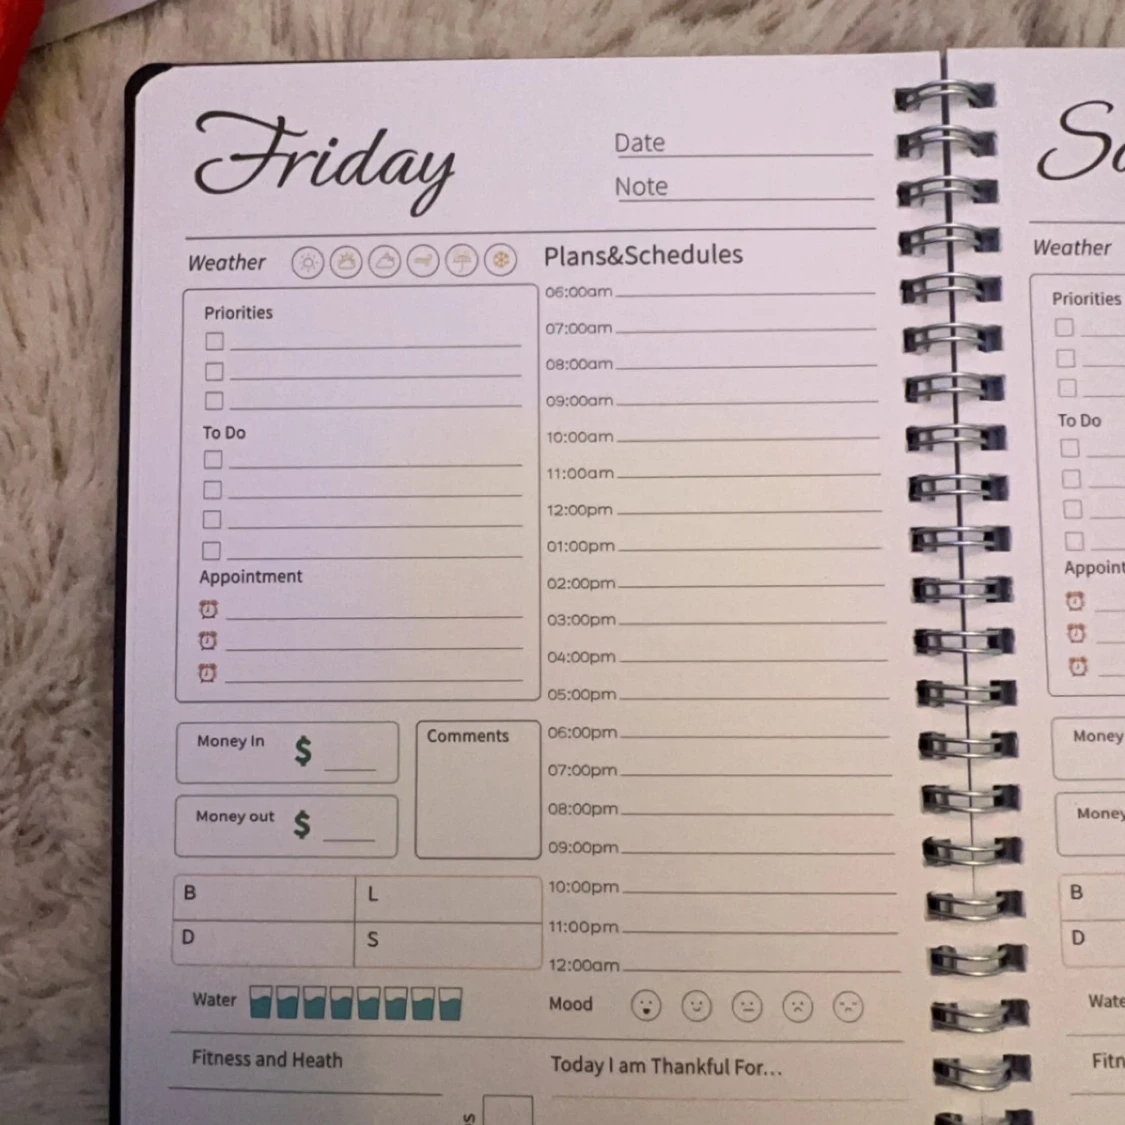 Friday
Date
Note
Weather
Plans&Schedules
Priorities
To Do
Appointment
06:00am
07:00am
08:00am
09:00am
10:00am
11:00am
12:00pm
01:00pm
02:00pm
03:00pm
04:00pm
05:00pm
06:00pm
07:00pm
08:00pm
09:00pm
10:00pm
11:00pm
12:00am
Money In $
Money out $
Comments
B
L
D
S
Water
Mood
Fitness and Heath
Today I am Thankful For...
Weather
Priorities
To Do
Money
Money
B
D